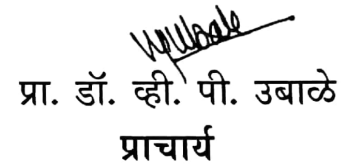 प्रा. डॉ. व्ही. पी. उबाळे
प्राचार्य